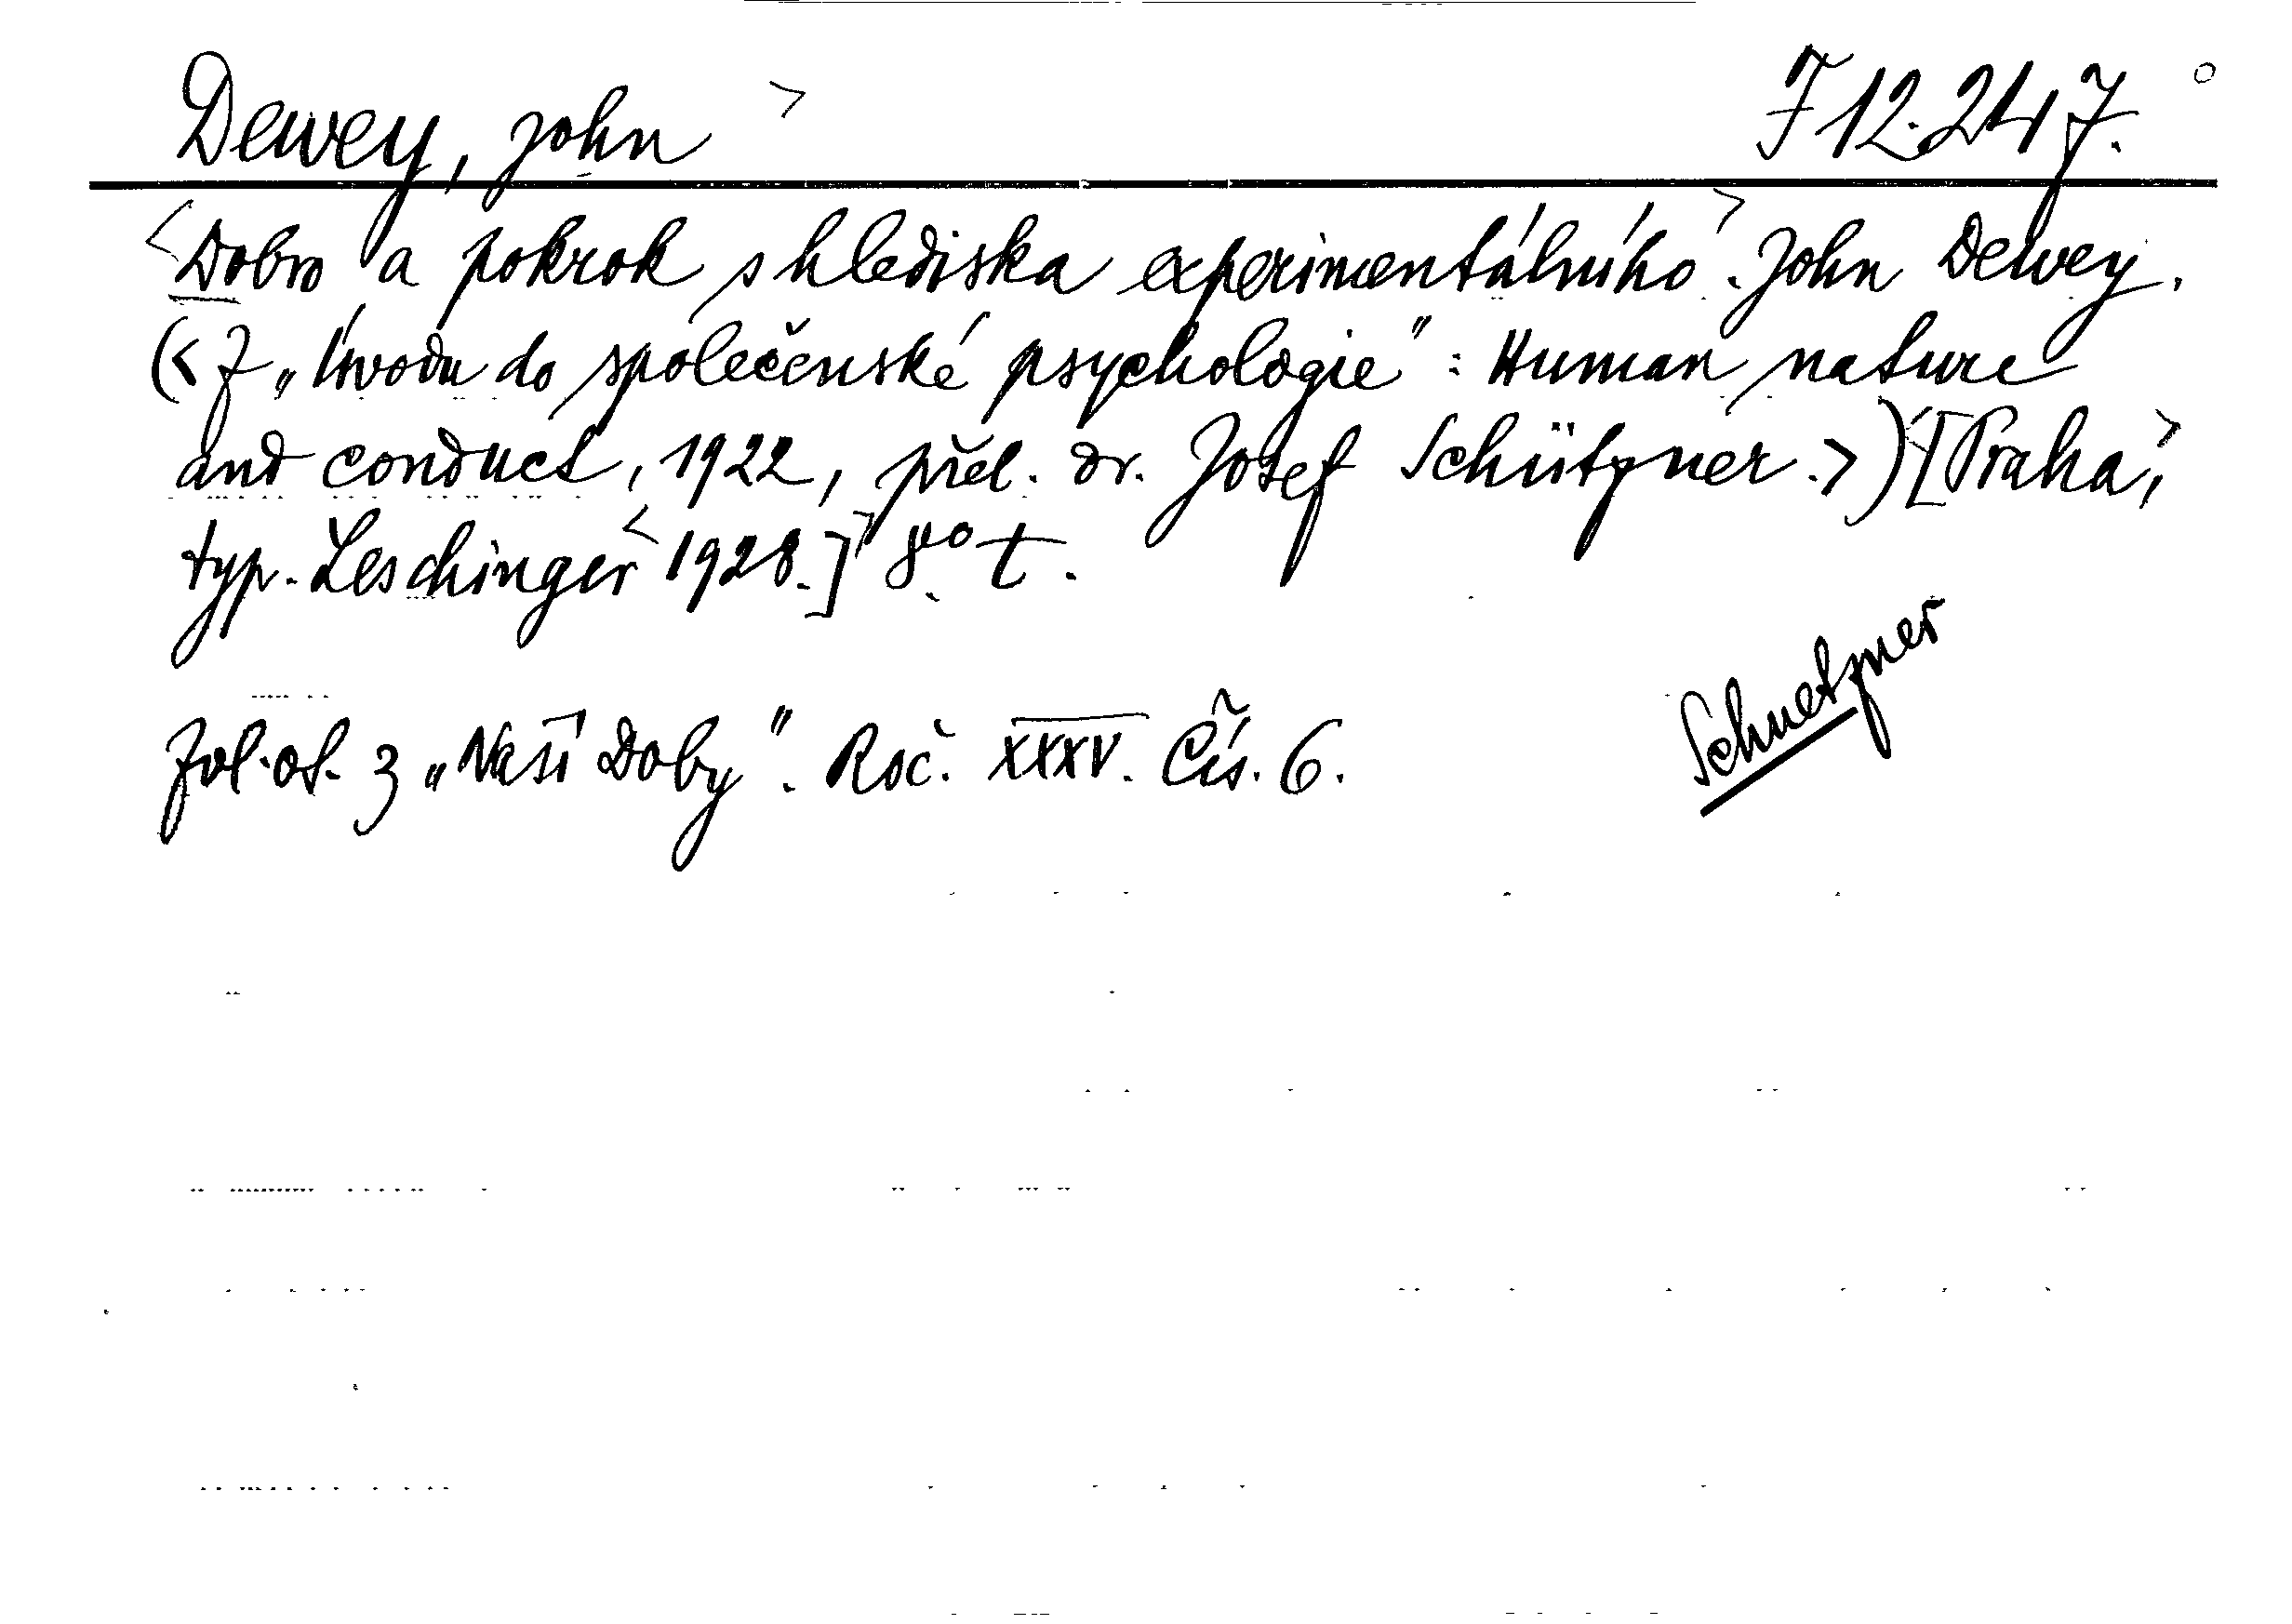 Dewey, John > F 12.247. °
<Dobro a pokrok s hlediska experimentálního>. John Dewey.
(<Z „Úvodu do společenské psychologie": Human nature
and conduct, 1922, přel. dr. Josef Schützner.>) <[Praha,>
typ. Leschinger <1928.]> 8° t.
Zvl. ot. z „Naší Doby". Roč. XXXV. Čís. 6.
Schuetzner